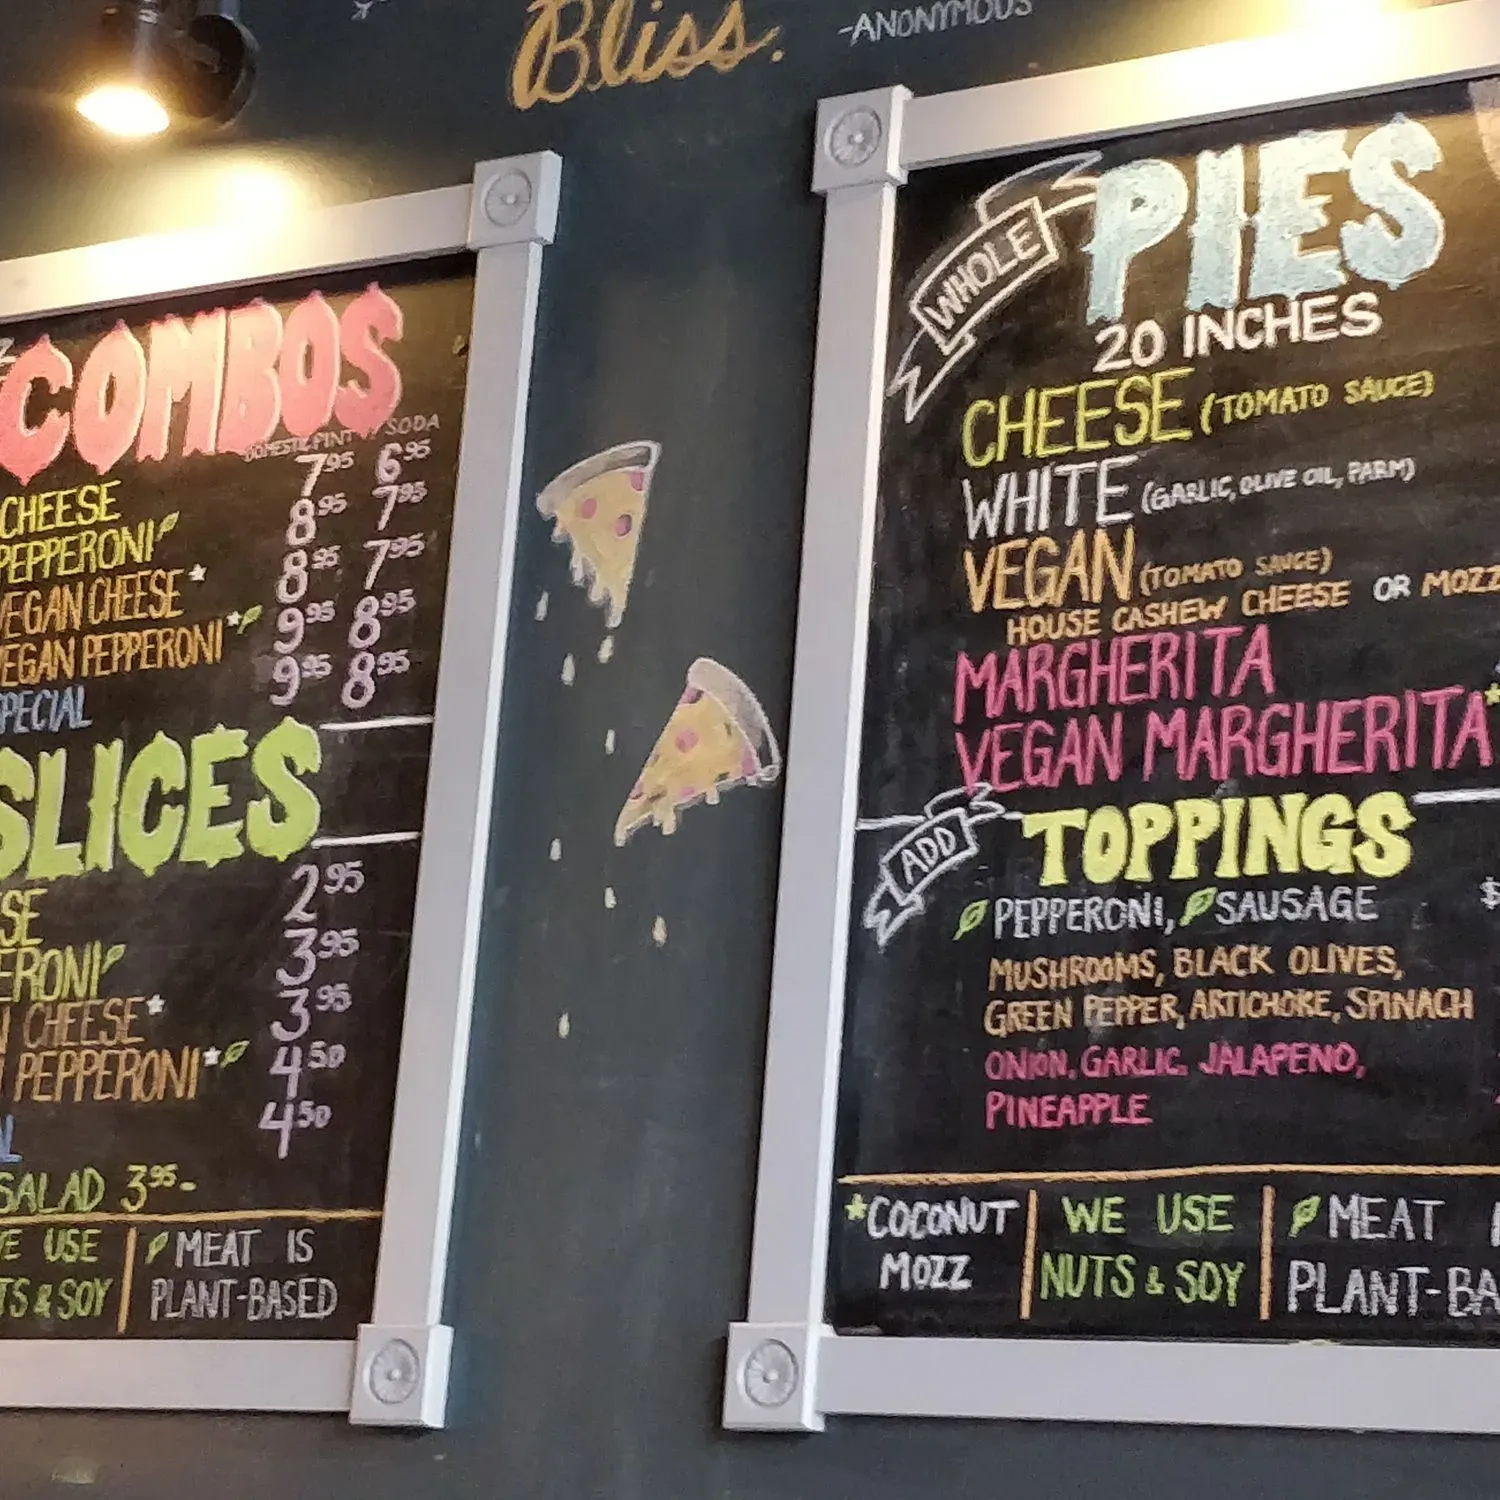 Bliss.
-ANONYMOUS
COMBOS
DOMESTIC PINT / SODA
7.95 6.95
CHEESE 8.95 7.95
PEPPERONI 8.95 7.95
VEGAN CHEESE* 9.95 8.95
VEGAN PEPPERONI* 9.95 8.95
SPECIAL
SLICES
SE 2.95
ERONI 3.95
N CHEESE* 3.95
PEPPERONI* 4.50
4.50
SALAD 3.95-
WE USE
TS & SOY
MEAT IS
PLANT-BASED
WHOLE
PIES
20 INCHES
CHEESE (TOMATO SAUCE)
WHITE (GARLIC, OLIVE OIL, PARM)
VEGAN (TOMATO SAUCE)
HOUSE CASHEW CHEESE OR MOZZ
MARGHERITA
VEGAN MARGHERITA*
ADD
TOPPINGS
PEPPERONI, SAUSAGE $
MUSHROOMS, BLACK OLIVES,
GREEN PEPPER, ARTICHOKE, SPINACH
ONION, GARLIC, JALAPENO,
PINEAPPLE
*COCONUT
MOZZ
WE USE
NUTS & SOY
MEAT
PLANT-BA